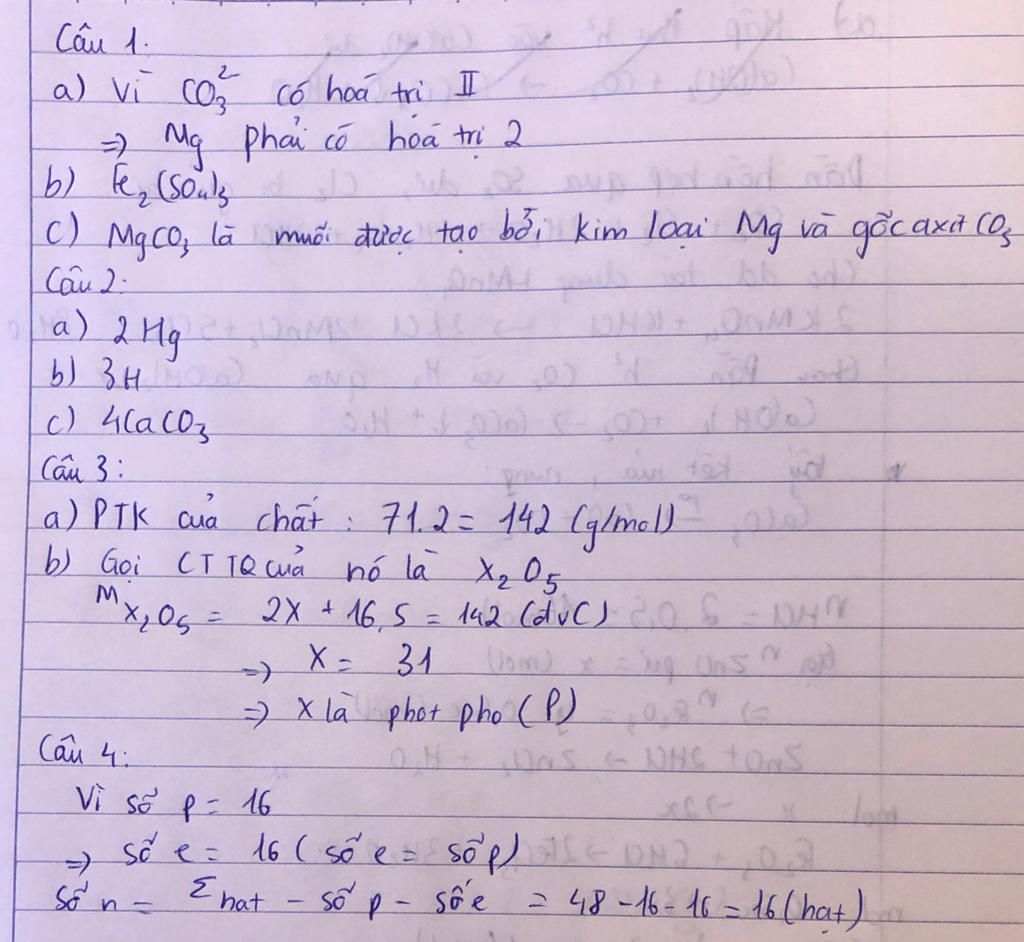 Câu 1.
a) Vì CO₃²⁻ có hoá trị II
=> Mg phải có hoá trị 2
b) Fe₂(SO₄)₃
c) MgCO₃ là muối được tạo bởi kim loại Mg và gốc axit CO₃
Câu 2:
a) 2Hg
b) 3H
c) 4CaCO₃
Câu 3:
a) PTK của chất : 71.2 = 142 (g/mol)
b) Gọi CTTQ của nó là X₂O₅
M X₂O₅ = 2X + 16.5 = 142 (đvC)
=> X = 31
=> X là phot pho (P)
Câu 4:
Vì số p = 16
=> số e = 16 ( số e = số p)
Số n = Σhạt - số p - số e = 48 - 16 - 16 = 16 (hạt)